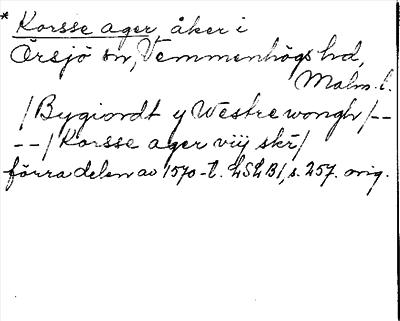 * Korsse ager, åker i
Örsjö sn, Vemmenhögs hd,
Malm. l.
/Bygiordt y Westre wongh/--
--/Korsse ager viij skr/
förra delen av 1570-t. LSLB1, s. 257. orig.